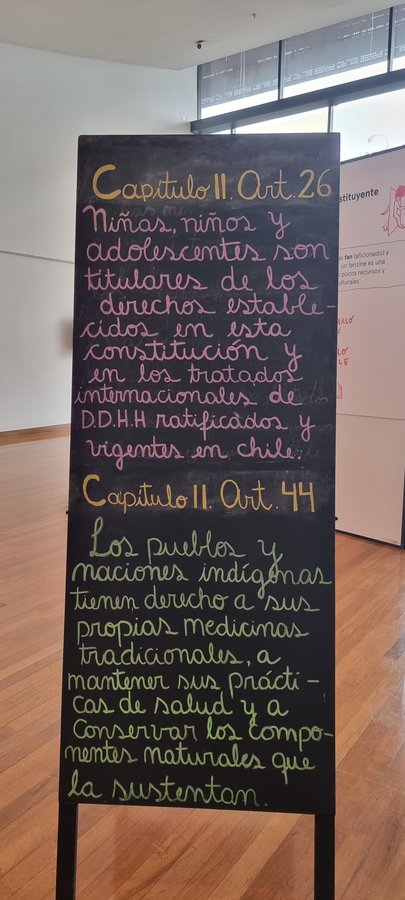 Capítulo II. Art. 26
Niñas, niños y
adolescentes son
titulares de los
derechos estable-
cidos en esta
constitución y
en los tratados
internacionales de
D.D.H.H ratificados y
vigentes en chile.
Capítulo II. Art. 44
Los pueblos y
naciones indígenas
tienen derecho a sus
propias medicinas
tradicionales, a
mantener sus prácti-
cas de salud y a
conservar los compo-
nentes naturales que
la sustentan.
stituyente
fan (aficionado) y
un fanzine es una
pocos recursos y
culturales.